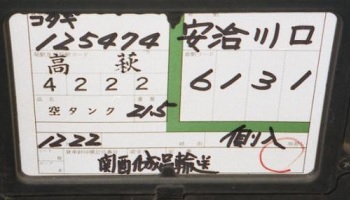 コタキ
125474 安治川口
高萩
4222 6131
空タンク 215
1222 側入
関西化成品輸送